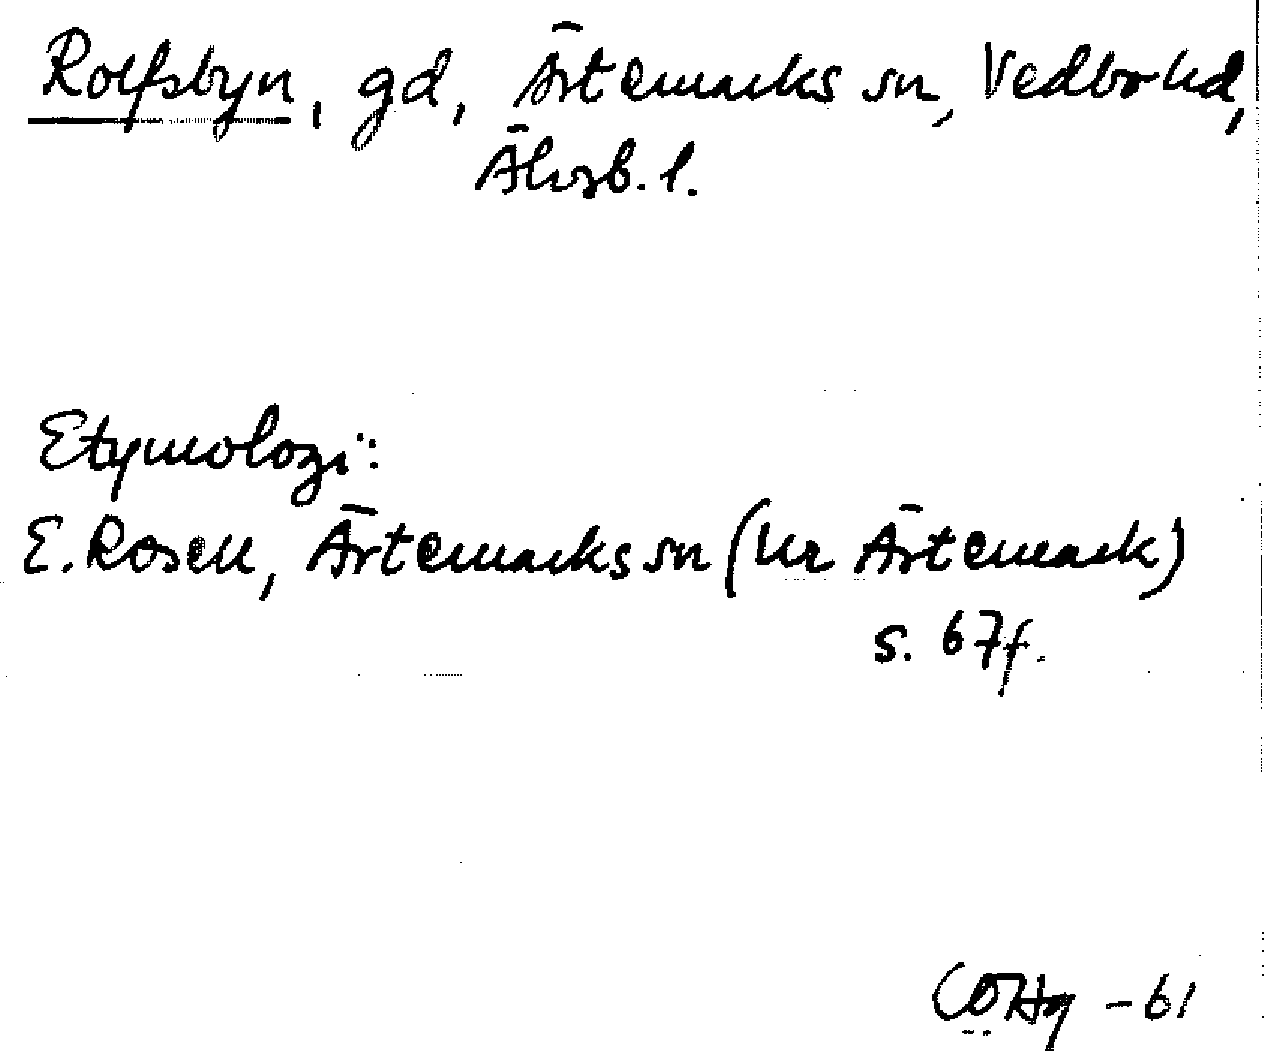 Rolfsbyn, gd, Ärtemarks sn, Vedbo hd,
Älvsb. l.
Etymologi:
E. Rosell, Ärtemarks sn (ur Ärtemark)
s. 67f.
-61